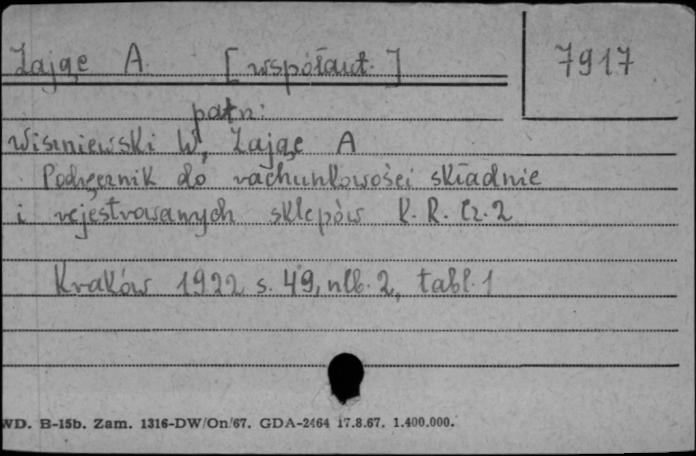 Zając A. [współaut.] 7917
patrz:
Wiśniewski W, Zając A
Podręcznik do rachunkowości składnic
i rejestrowanych sklepów K. R. Cz. 2
Kraków 1922 s. 49, nlb. 2, tabl. 1
WD. B-15b. Zam. 1316-DW/On/67. GDA-2464 17.8.67. 1.400.000.